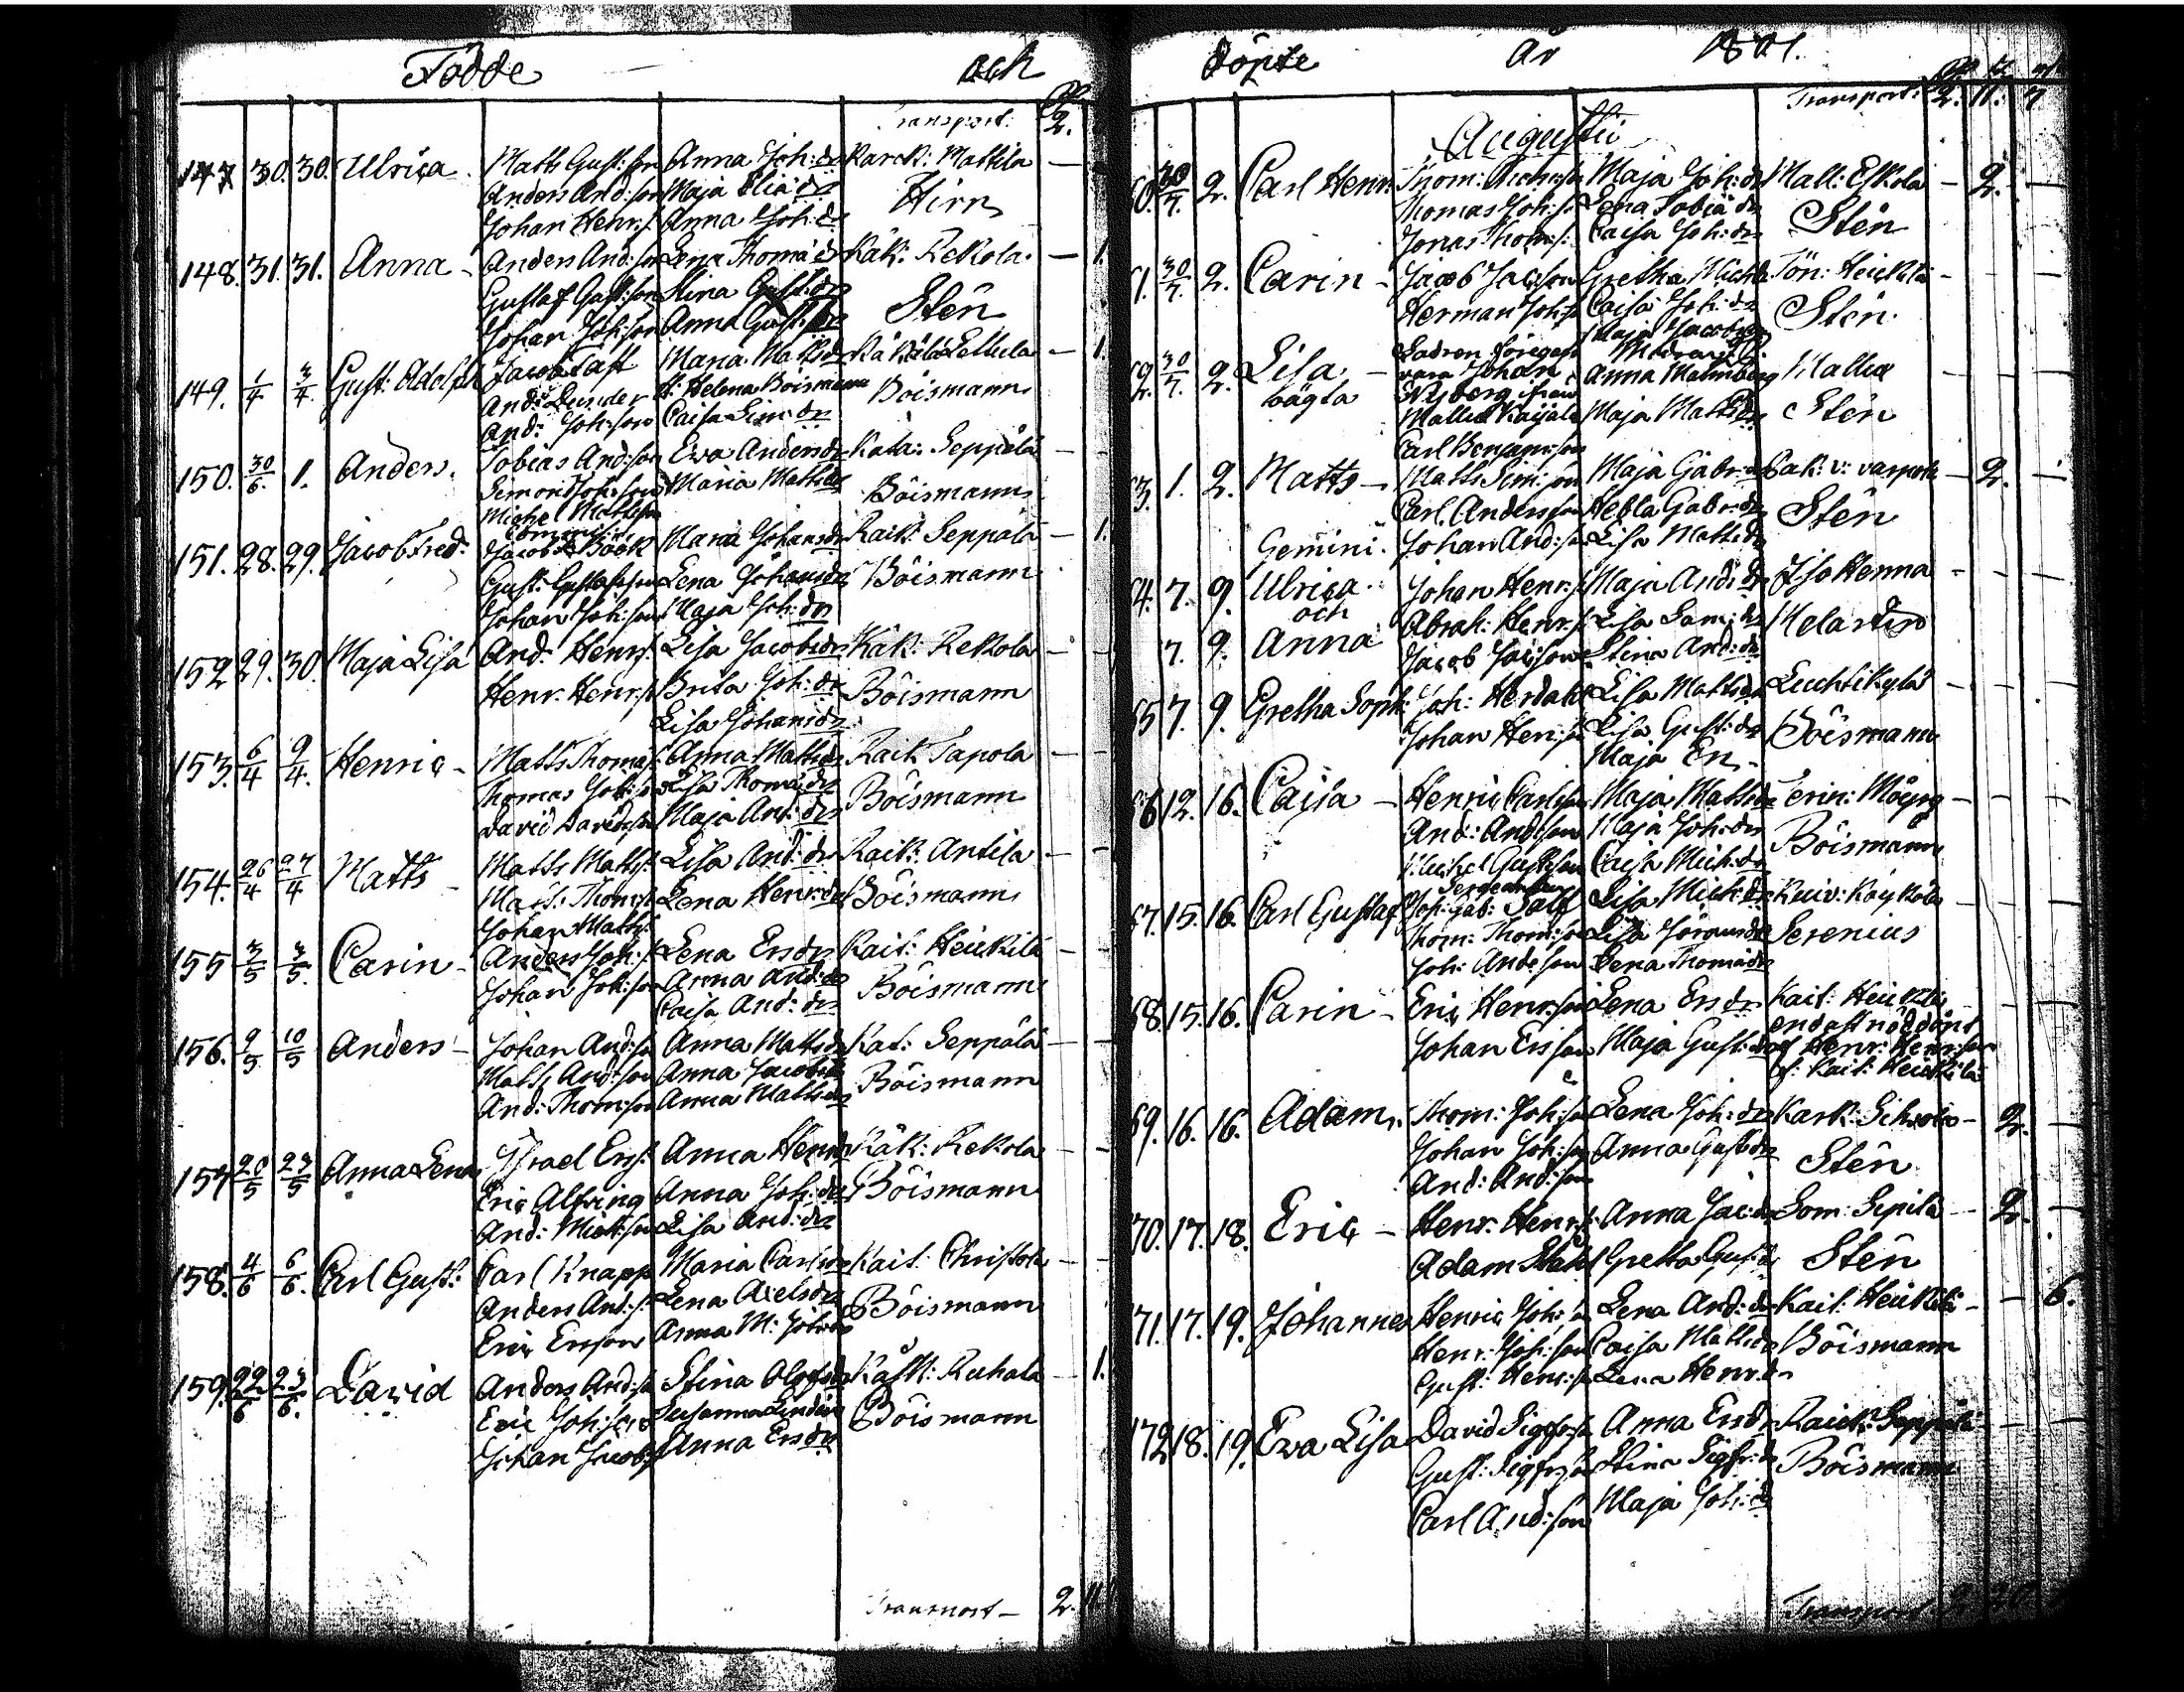 Födde och
Transport: 2.
147 30. 30. Ulrica. Matts Gust:son Anna Joh:dr Karck: Mattila —
Anders And:son Maja Eliædr Hirn
Johan Henr:s. Anna Joh:dr
148. 31. 31. Anna - Anders And:son Lena Thomædr Käk: Rekola. — 1.
Gustaf Gust:son Stina Gust:dr Stén
Johan Joh:son Anna Gust:dr
149. 1/4 3/4 Gust: Adolph Jacob Taft Maria Matts dr Käkölä Lellula — 1.
And: Dunder H: Helena Böismann Böismann
And: Joh:son Caisa Sim:dr
150. 30/6. 1. Anders. Tobias And:son Eva Andersdr Kata: Seppälä —
Simon Joh:son Maria Mattsdr Böismann
Michel Mattsson
151. 28. 29. Jacob Fred: Jacob Böök Maria Johansdr Kait: Seppälä — 1.
Gust: Gustafsson Lena Johansdr Böismann
Johan Joh:son Maja Joh:dr
152 29. 30. Maja Lisa And: Henrs. Lisa Jacobsdr Käk: Rekola —
Henr: Henr:s. Brita Joh:dr Böismann
Lisa Johansdr
153. 6/4 9/4. Henric - Matts Thomas: Anna Mattsdr Kait Tapola —
Thomas Joh:s Lisa Thomædr Böismann
David Davidsson Maja And:dr
154. 26/4 27/4 Matts - Matts Matts: Lisa And:dr Kait: Antila —
Matts Thoms: Lena Henr:dr Böismann
Johan Matts:
155 3/5 3/5. Carin - Anders Joh:s. Lena Ersdr Kait: Heickilä —
Johan Joh:son Anna And:dr Böismann
Caisa And:dr
156. 9/5 10/5 Anders - Johan And:s Anna Mattsdr Kat: Seppälä —
Matts And:son Anna Jacobsdr Böismann
And: Thom:son Anna Mattsdr
157 20/5 23/5 Anna Lena Israel Ers: Anna Henrdr Käk: Rekola —
Eric Alfring Anna Joh:dr Böismann
And: Mich:son Lisa And:dr
158. 4/6 6/6. Carl Gust: Carl Knapp Maria Carlsdr Kait: Christola —
Anders And:s. Lena Axelsdr Böismann
Eric Ersson Anna M: Joh:dr
159. 22/6 23/6. David Anders And:s Stina Olofsdr Käkk: Ruhala — 1.
Eric Joh:son Susanna Lindein Böismann
Johan Jacobs: Anna Ersdr
Transport — 2. 11
döpte år 1801.
Transport: 2. 11. 7
Augusti
60. 30/7. 2. Carl Henr. Thom: Mich:son Maja Joh:dr Mall: Eskola — 2. —
Thomas Joh:s Lena Tobiædr Stén
Jonas Thom:s: Caisa Joh:dr
61. 30/7. 2. Carin - Jacob Jac:son Gretha Michdr Tön: Heickilä —
Herman Joh:s Caisa Joh:dr Stén.
Maja Jacobsdr
62. 30/7. 2. Lisa - Fadren föregafs
oägta vara Johan Anna Malmberg Mallia —
Nyberg ifrån Stén
Mallia Kaijala Maja Mattsdr
Carl Benjam:son
63. 1. 2. Matts - Matts Sim:son Maja Gabr:dr Pak: v: varpula — 2. —
Carl Andersson Hebla Gabr:dr Stén
Gemini. Johan And:s Lisa Mattsdr
64. 7. 9. Ulrica Johan Henr:s. Maja And:dr Iso Henna —
och Abrah: Henr:s. Lisa Sam:dr Melartin
7. 9. Anna Jacob Jac:son Stina And:dr
65 7. 9. Gretha Soph: Joh: Herdahl Lisa Mattsdr Luchtikylä —
Johan Henr:s Lisa Gust:dr Böismann
Maja Er.
66 12. 16. Cajsa - Henric Carlsson Maja Mattsdr —
And: And:son Maja Joh:dr Böismann
Michel Gust:son Caisa Mich:dr
67. 15. 16. Carl Gustaf Sergeanten
Joh: Gab: Salf Lisa Mich:dr Kuiv: Koykola —
Thom: Thom:s Lisa Göransdr Serenius
Joh: And:son Lena Thomædr
68. 15. 16. Carin - Eric Henr:son Lena Ersdr Kait: Heickilä —
Johan Ersson Maja Gust:dr endast nöddöpt
af Henr: Henr:son
f: Kait: Heickilä
69. 16. 16. Adam. Thom: Joh:s Lena Joh:dr Kark: — 2. —
Johan Joh:son Anna Gustdr Stén
And: And:son
70. 17. 18. Eric - Henr: Henr:s: Anna Jac:dr Som: Sepilä — 2. —
Adam Ståhl Gretha Gust:dr Stén
71. 17. 19. Johannes Henric Joh:s Lena And:dr Kait: Heickilä — 6.
Henr: Joh:son Caisa Mattsdr Böismann
Gust: Henr:s Lena Henr:dr
172 18. 19. Eva Lisa David Sigfr:s Anna Ersdr Raick: Seppälä —
Gust: Sigfr:s Stina Sigfr:dr Böismann
Carl And:son Maja Joh:dr
Transport